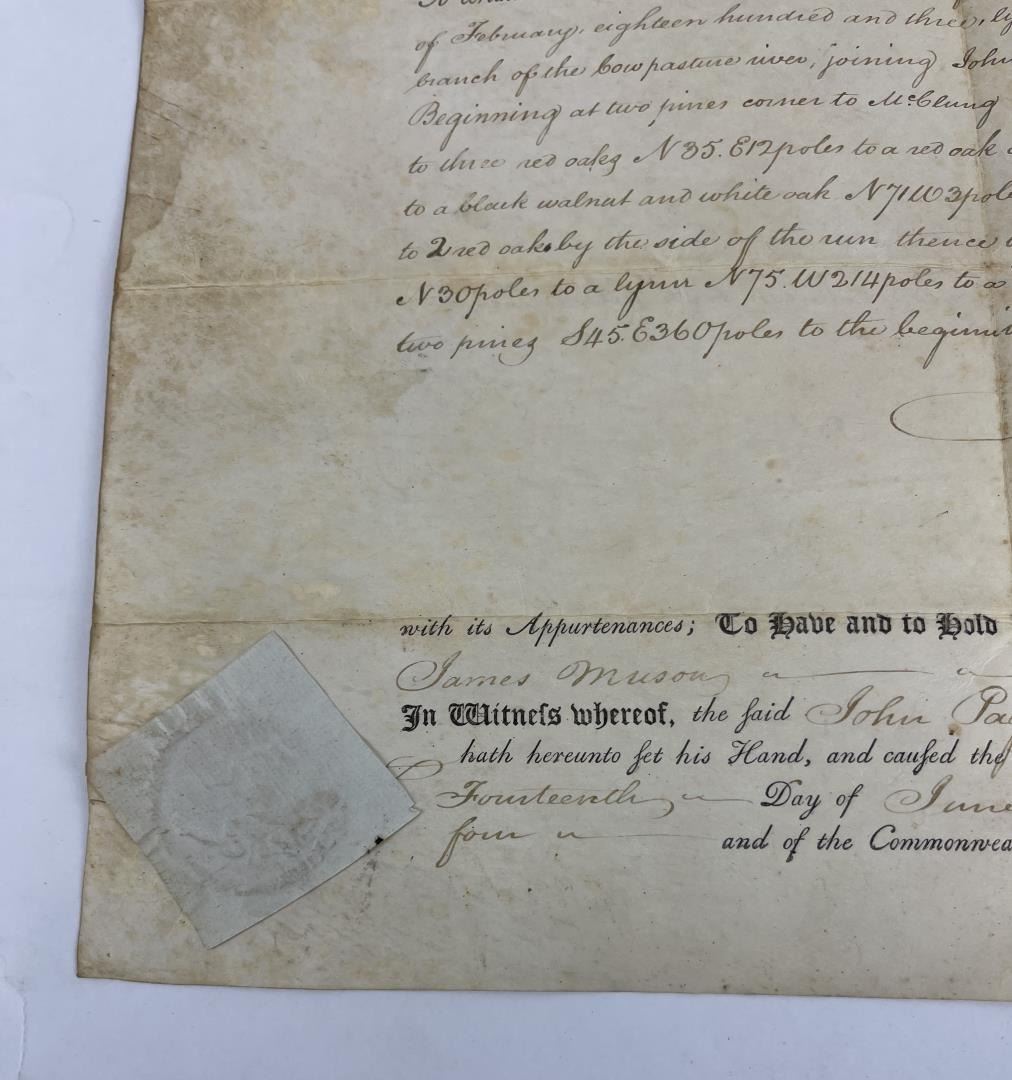 of February, eighteen hundred and three, ly
branch of the Cowpasture river, joining John
Beginning at two pines corner to McClung
to three red oaks N35.E12poles to a red oak
to a black walnut and white oak N71W3pole
to 2 red oaks by the side of the run thence
N30poles to a lynn N75.W214poles to a
two pines S45.E360poles to the beginni
with its Appurtenances; To Have and to Hold
James Muson
In Witneſs whereof, the ſaid John Pa
hath hereunto ſet his Hand, and cauſed the
Fourteenth Day of June
four and of the Commonwea